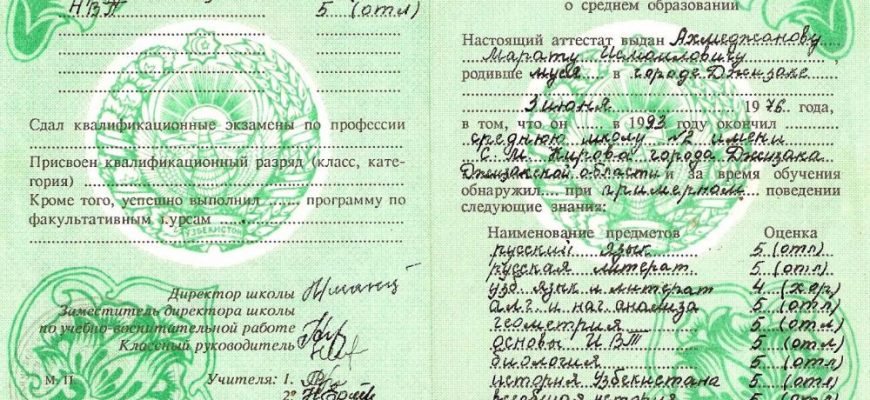 НВТ 5 (отл)
Сдал квалификационные экзамены по профессии
Присвоен квалификационный разряд (класс, кате-
гория)
Кроме того, успешно выполнил ....... программу по
факультативным курсам
УЗБЕКИСТОН
Директор школы
Заместитель директора школы
по учебно-воспитательной работе
Классный руководитель
М. П. Учителя: 1.
2.
о среднем образовании
Настоящий аттестат выдан Ахмеджанову
Марату Исмаиловичу,
родивше муся в городе Джизаке
3 июня 1976 года,
в том, что он в 1993 году окончил
среднюю школу №2 имени
С. М. Кирова города Джизака
Джизакской области и за время обучения
обнаружил при примерном поведении
следующие знания:
Наименование предметов Оценка
русский язык 5 (отл)
русская литерат. 5 (отл)
узб язык и литерат 4 (хор)
алг и нач анализа 5 (отл)
геометрия 5 (отл)
основы ИВТ 5 (отл)
биология 5 (отл)
история Узбекистана 5 (отл)
всеобщая история 5 (отл)